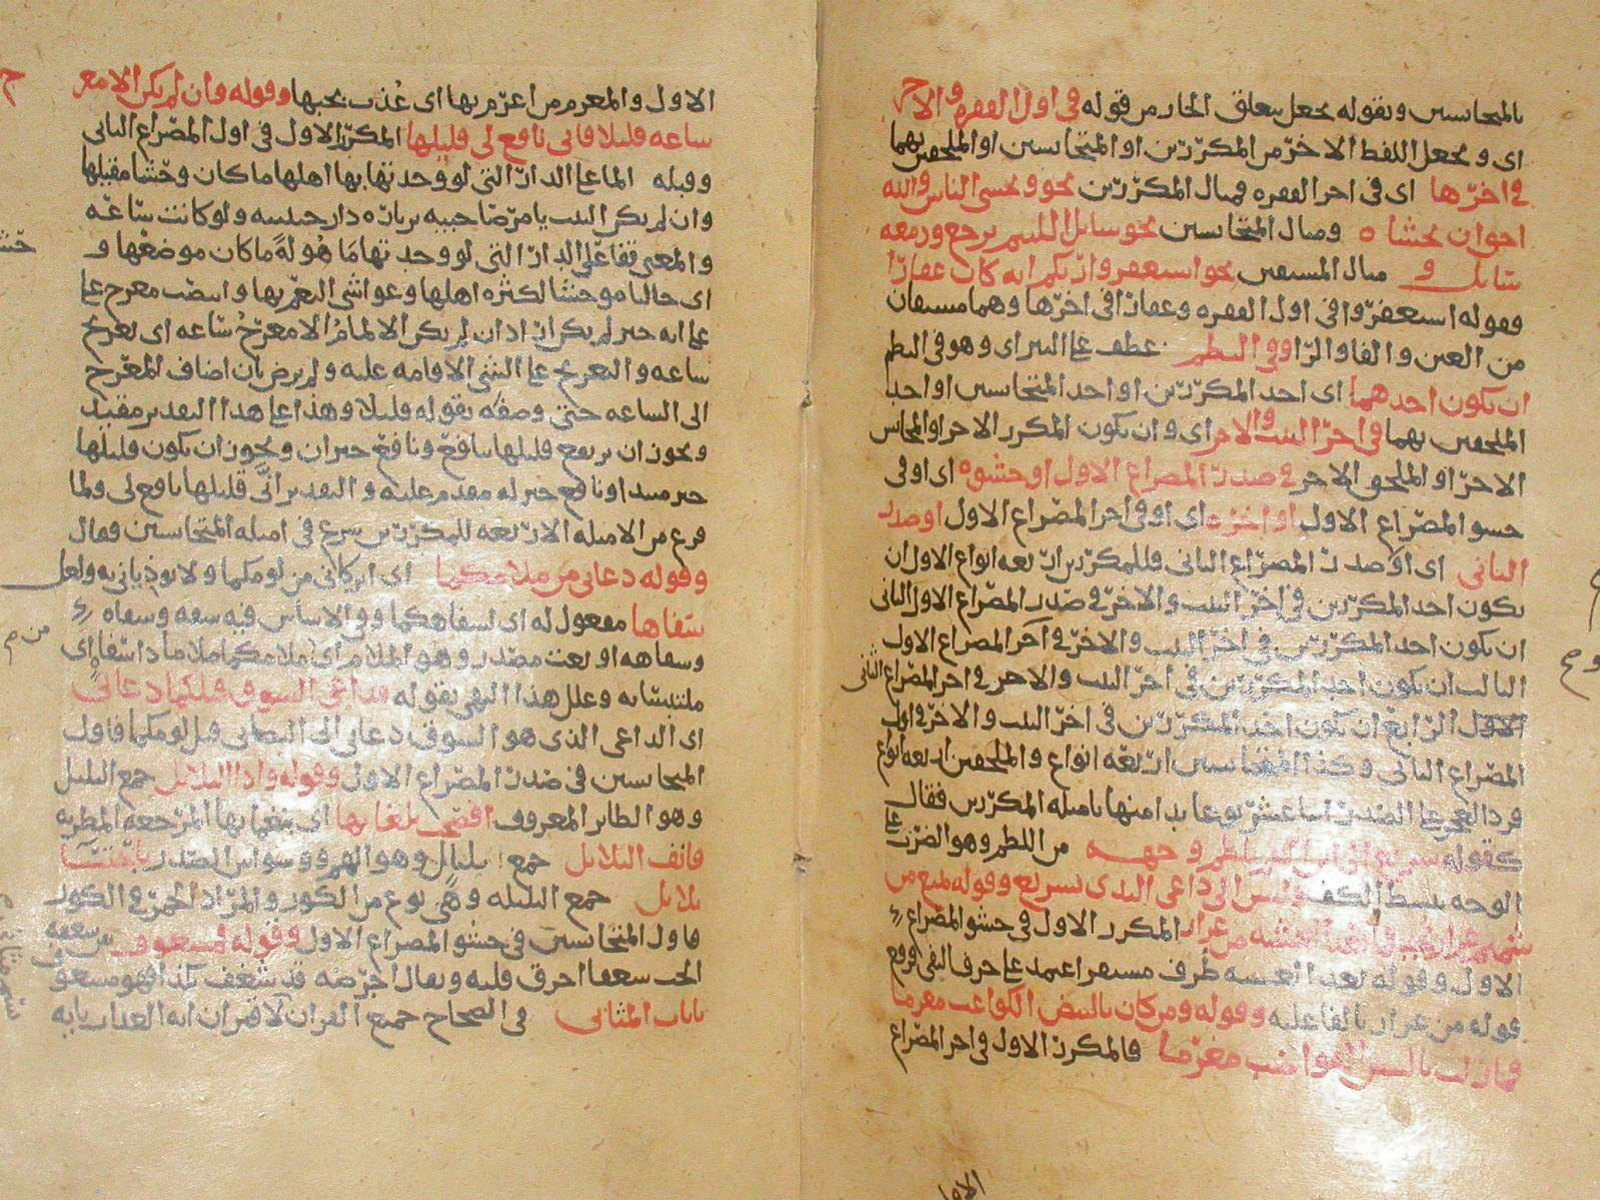 بالمتجانسين وبقوله يجعل يتعلق الجار من قوله في اول الفقره والاخر
اي ويجعل اللفظ الاخر من المكررين او المتجانسين او الملحقين بهما
في اخرها اي في اخر الفقره فمثال المكررين نحو وتخشى الناس والله
احق ان تخشاه ومثال المتجانسين نحو سائل اللئيم يرجع ودمعه
سائل و مثال المشتقين نحو استغفروا ربكم انه كان غفارا
فقوله استغفروا في اول الفقره وغفارا في اخرها وهما مشتقان
من الغين والفا والرا وفي النظم عطف على النثر اي وهو في النظم
ان يكون احدهما اي احد المكررين او احد المتجانسين او احد
الملحقين بهما في اخر البيت والاخر اي وان يكون المكرر الاخر او المجانس
الاخر او الملحق الاخر في صدر المصراع الاول او حشوه اي او في
حشو المصراع الاول او اخره اي او في اخر المصراع الاول او صدر
الثاني اي او صدر المصراع الثاني فللمكررين اربعه انواع الاول ان
يكون احد المكررين في اخر البيت والاخر في صدر المصراع الاول الثاني
ان يكون احد المكررين في اخر البيت والاخر في اخر المصراع الاول
الثالث ان يكون احد المكررين في اخر البيت والاخر في اخر المصراع الثاني
الاول الرابع ان يكون احد المكررين في اخر البيت والاخر في اول
المصراع الثاني وكذا المتجانسين اربعه انواع والملحقين اربعه انواع
فرد العجز على الصدر اثنا عشر نوعا بدا منها بامثله المكررين فقال
كقوله سريع الى ابن العم يلطم وجهه من اللطم وهو الضرب على
الوجه ببسط الكف وليس الى داعي الندى بسريع وقوله تمتع من
شميم عرار نجد فما بعد العشيه من عرار المكرر الاول في حشو المصراع
الاول وقوله بعد العشيه ظرف مستقر اعتمد على حرف النفي فرفع
قوله من عرار بالفاعليه وقوله ومن كان بالبيض الكواعب مغرما
فما زلت بالبيض القواضب مغرما فالمكرر الاول في اخر المصراع
الاول والمغرم من اغرم بها اي عذب بحبها وقوله وان لم يكن الا معر ج
ساعه قليلا فاني نافع لي قليلها المكرر الاول في اول المصراع الثاني
وقبله الما على الدار التي لو وجدتها بها اهلها ما كان وحشا مقيلها
وان لم يكن البيت يا مر صاحبيه بزياره دار حبيبه ولو كانت ساعه
والمعنى قفا على الدار التي لو وجدتها ماهوله ما كان موضعها و
اي خاليا موحشا لكثره اهلها وغواشي النعم بها وانتصب معرج على
على انه خبر لم يكن اذ ان لم يكن الالمام الا معرج ساعه اي تعريج
ساعه والتعريج على الشي الاقامه عليه ولم يرض بان اضاف المعرج
الى الساعه حتى وصفه بقوله قليلا وهذا على هذا التقدير مقيد
ويجوز ان يرتفع قليلها بنافع ونافع خبر ان ويجوز ان يكون قليلها
خبر مبتدا ونافع خبر له مقدم عليه والتقدير اني قليلها نافع لي ولما
فرغ من الامثله الاربعه للمكررين شرع في امثله المتجانسين فقال
وقوله دعاني من ملامكما اي اتركاني من لومكما ولا
سفاها مفعول له اي لسفاهكما وفي الاساس فيه سفه وسفاه
وسفاهه او نعت مصدر وهو الملام اي ملامكما ملاما ذا سفاه اي
ملتبسا به وعلل هذا النهي بقوله فداعي الشوق قبلكما دعاني
اي الداعي الذي هو الشوق دعاني الى التصابي قبل لومكما فاول
المتجانسين في صدر المصراع الاول وقوله واذا البلابل جمع البلبل
وهو الطاير المعروف افصحت بلغاتها اي بنغماتها المرجعه المطربه
فانف البلابل جمع بلبال وهو الهم ووسواس الصدر باحتساء
بلابل جمع البلبله وهي نوع من الكوز والمراد الخمر في الكوز
فاول المتجانسين في حشو المصراع الاول وقوله فمشعوف من شعفه
الحب شعفا احرق قلبه ويقال امرضه قد شغف بكذا فهو مشعوف
بايات المثاني في الصحاح جميع القران لاقتران ايه العذاب بايه